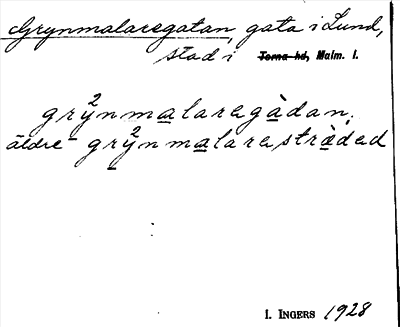 Grynmalaregatan, gata i Lund,
stad i Torna hd, Malm. l.
grÿ²nmalaregàdan.
äldre - grÿ²nmalarestràded
I. INGERS 1928